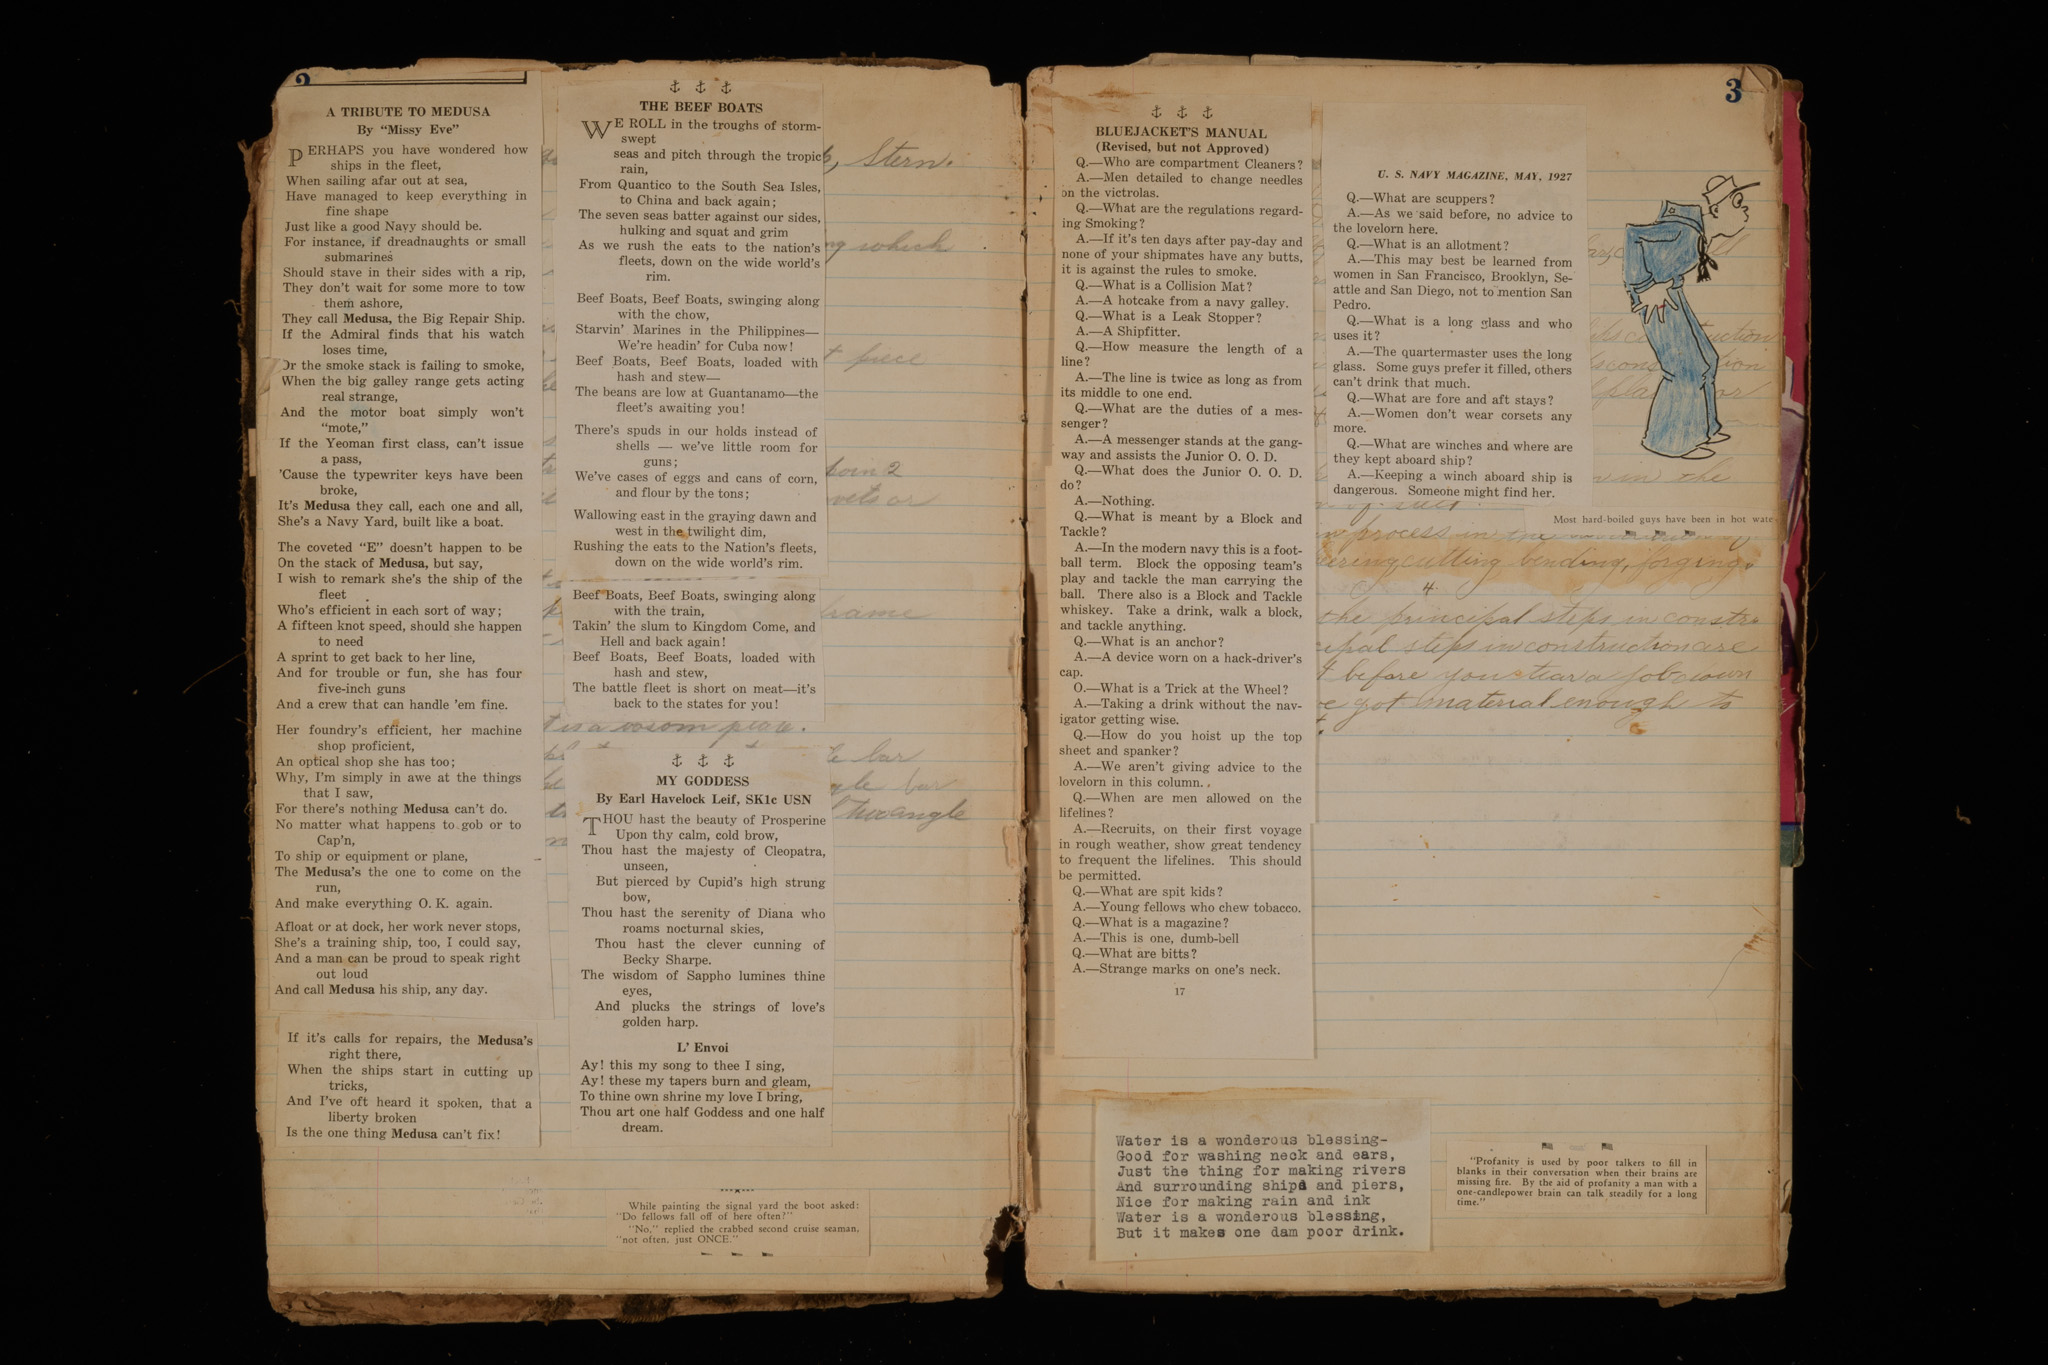 A TRIBUTE TO MEDUSA
By "Missy Eve"
PERHAPS you have wondered how
ships in the fleet,
When sailing afar out at sea,
Have managed to keep everything in
fine shape
Just like a good Navy should be.
For instance, if dreadnaughts or small
submarines
Should stave in their sides with a rip,
They don't wait for some more to tow
them ashore,
They call Medusa, the Big Repair Ship.
If the Admiral finds that his watch
loses time,
Or the smoke stack is failing to smoke,
When the big galley range gets acting
real strange,
And the motor boat simply won't
"mote,"
If the Yeoman first class, can't issue
a pass,
'Cause the typewriter keys have been
broke,
It's Medusa they call, each one and all,
She's a Navy Yard, built like a boat.
The coveted "E" doesn't happen to be
On the stack of Medusa, but say,
I wish to remark she's the ship of the
fleet
Who's efficient in each sort of way;
A fifteen knot speed, should she happen
to need
A sprint to get back to her line,
And for trouble or fun, she has four
five-inch guns
And a crew that can handle 'em fine.
Her foundry's efficient, her machine
shop proficient,
An optical shop she has too;
Why, I'm simply in awe at the things
that I saw,
For there's nothing Medusa can't do.
No matter what happens to gob or to
Cap'n,
To ship or equipment or plane,
The Medusa's the one to come on the
run,
And make everything O. K. again.
Afloat or at dock, her work never stops,
She's a training ship, too, I could say,
And a man can be proud to speak right
out loud
And call Medusa his ship, any day.
If it's calls for repairs, the Medusa's
right there,
When the ships start in cutting up
tricks,
And I've oft heard it spoken, that a
liberty broken
Is the one thing Medusa can't fix!
THE BEEF BOATS
WE ROLL in the troughs of storm-
swept
seas and pitch through the tropic
rain,
From Quantico to the South Sea Isles,
to China and back again;
The seven seas batter against our sides,
hulking and squat and grim
As we rush the eats to the nation's
fleets, down on the wide world's
rim.
Beef Boats, Beef Boats, swinging along
with the chow,
Starvin' Marines in the Philippines—
We're headin' for Cuba now!
Beef Boats, Beef Boats, loaded with
hash and stew—
The beans are low at Guantanamo—the
fleet's awaiting you!
There's spuds in our holds instead of
shells — we've little room for
guns;
We've cases of eggs and cans of corn,
and flour by the tons;
Wallowing east in the graying dawn and
west in the twilight dim,
Rushing the eats to the Nation's fleets,
down on the wide world's rim.
Beef Boats, Beef Boats, swinging along
with the train,
Takin' the slum to Kingdom Come, and
Hell and back again!
Beef Boats, Beef Boats, loaded with
hash and stew,
The battle fleet is short on meat—it's
back to the states for you!
MY GODDESS
By Earl Havelock Leif, SK1c USN
THOU hast the beauty of Prosperine
Upon thy calm, cold brow,
Thou hast the majesty of Cleopatra,
unseen,
But pierced by Cupid's high strung
bow,
Thou hast the serenity of Diana who
roams nocturnal skies,
Thou hast the clever cunning of
Becky Sharpe.
The wisdom of Sappho lumines thine
eyes,
And plucks the strings of love's
golden harp.
L' Envoi
Ay! this my song to thee I sing,
Ay! these my tapers burn and gleam,
To thine own shrine my love I bring,
Thou art one half Goddess and one half
dream.
Stern.
which
piece
frame
is a
bar
bar
angle
While painting the signal yard the boot asked:
"Do fellows fall off of here often?"
"No," replied the crabbed second cruise seaman,
"not often, just ONCE."
3
BLUEJACKET'S MANUAL
(Revised, but not Approved)
Q.—Who are compartment Cleaners?
A.—Men detailed to change needles
on the victrolas.
Q.—What are the regulations regard-
ing Smoking?
A.—If it's ten days after pay-day and
none of your shipmates have any butts,
it is against the rules to smoke.
Q.—What is a Collision Mat?
A.—A hotcake from a navy galley.
Q.—What is a Leak Stopper?
A.—A Shipfitter.
Q.—How measure the length of a
line?
A.—The line is twice as long as from
its middle to one end.
Q.—What are the duties of a mes-
senger?
A.—A messenger stands at the gang-
way and assists the Junior O. O. D.
Q.—What does the Junior O. O. D.
do?
A.—Nothing.
Q.—What is meant by a Block and
Tackle?
A.—In the modern navy this is a foot-
ball term. Block the opposing team's
play and tackle the man carrying the
ball. There also is a Block and Tackle
whiskey. Take a drink, walk a block,
and tackle anything.
Q.—What is an anchor?
A.—A device worn on a hack-driver's
cap.
O.—What is a Trick at the Wheel?
A.—Taking a drink without the nav-
igator getting wise.
Q.—How do you hoist up the top
sheet and spanker?
A.—We aren't giving advice to the
lovelorn in this column.
Q.—When are men allowed on the
lifelines?
A.—Recruits, on their first voyage
in rough weather, show great tendency
to frequent the lifelines. This should
be permitted.
Q.—What are spit kids?
A.—Young fellows who chew tobacco.
Q.—What is a magazine?
A.—This is one, dumb-bell
Q.—What are bitts?
A.—Strange marks on one's neck.
17
U. S. NAVY MAGAZINE, MAY, 1927
Q.—What are scuppers?
A.—As we said before, no advice to
the lovelorn here.
Q.—What is an allotment?
A.—This may best be learned from
women in San Francisco, Brooklyn, Se-
attle and San Diego, not to mention San
Pedro.
Q.—What is a long glass and who
uses it?
A.—The quartermaster uses the long
glass. Some guys prefer it filled, others
can't drink that much.
Q.—What are fore and aft stays?
A.—Women don't wear corsets any
more.
Q.—What are winches and where are
they kept aboard ship?
A.—Keeping a winch aboard ship is
dangerous. Someone might find her.
Most hard-boiled guys have been in hot wate
in the
process in the
cutting bending, forging.
4.
the principal steps in constr
steps in construction are
before you tear a job down
got material enough to
Water is a wonderous blessing-
Good for washing neck and ears,
Just the thing for making rivers
And surrounding ships and piers,
Nice for making rain and ink
Water is a wonderous blessing,
But it makes one dam poor drink.
"Profanity is used by poor talkers to fill in
blanks in their conversation when their brains are
missing fire. By the aid of profanity a man with a
one-candlepower brain can talk steadily for a long
time."